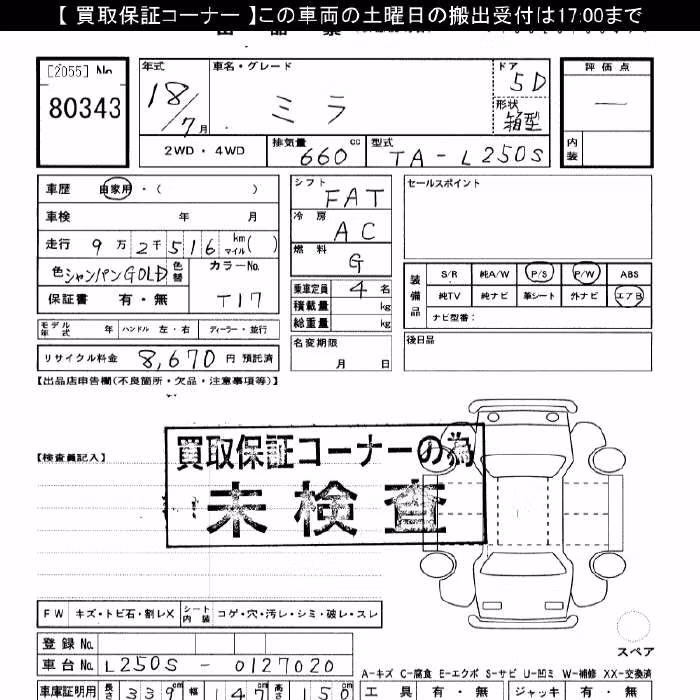 【 買取保証コーナー 】この車両の土曜日の搬出受付は17:00まで
[2055] No
80343
年式 18/7月
車名・グレード ミラ
ドア 5D
形状 箱型
評価点 —
内装
2WD・4WD
排気量 660 cc
型式 TA-L250S
車歴 自家用・( )
車検 年 月
走行 9万2千516 km マイル( )
色 シャンパンGOLD 色替
カラーNo. T17
保証書 有・無
モデル年式 年 ハンドル 左・右 ディーラー・並行
リサイクル料金 8,670 円 預託済
シフト FAT
冷房 AC
燃料 G
乗車定員 4 名
積載量 kg
総重量 kg
名変期限
月 日
セールスポイント
装備品
S/R 純A/W P/S P/W ABS
純TV 純ナビ 革シート 外ナビ エアB
ナビ型番:
後日品
【出品店申告欄(不良箇所・欠品・注意事項等)】
【検査員記入】
買取保証コーナーの為
未検査
FW キズ・トビ石・割レX シート内装 コゲ・穴・汚レ・シミ・破レ・スレ
スペア
登録 No.
車台 No. L250S - 0127020
A-キズ C-腐食 E-エクボ S-サビ U-凹ミ W-補修 XX-交換済
車庫証明用 長さ 339cm 幅 147cm 高さ 150cm
工具 有・無 ジャッキ 有・無